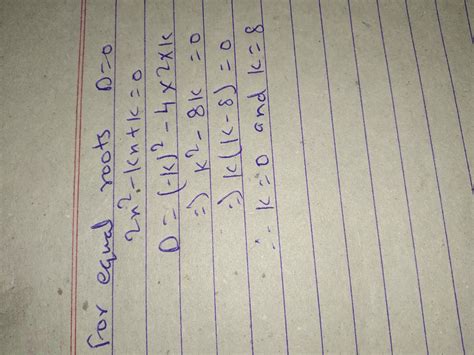 For equal roots D=0
2x²-kx+k=0
D=(-k)²-4×2×k
=) k²-8k=0
=) k(k-8)=0
∴ k=0 and k=8